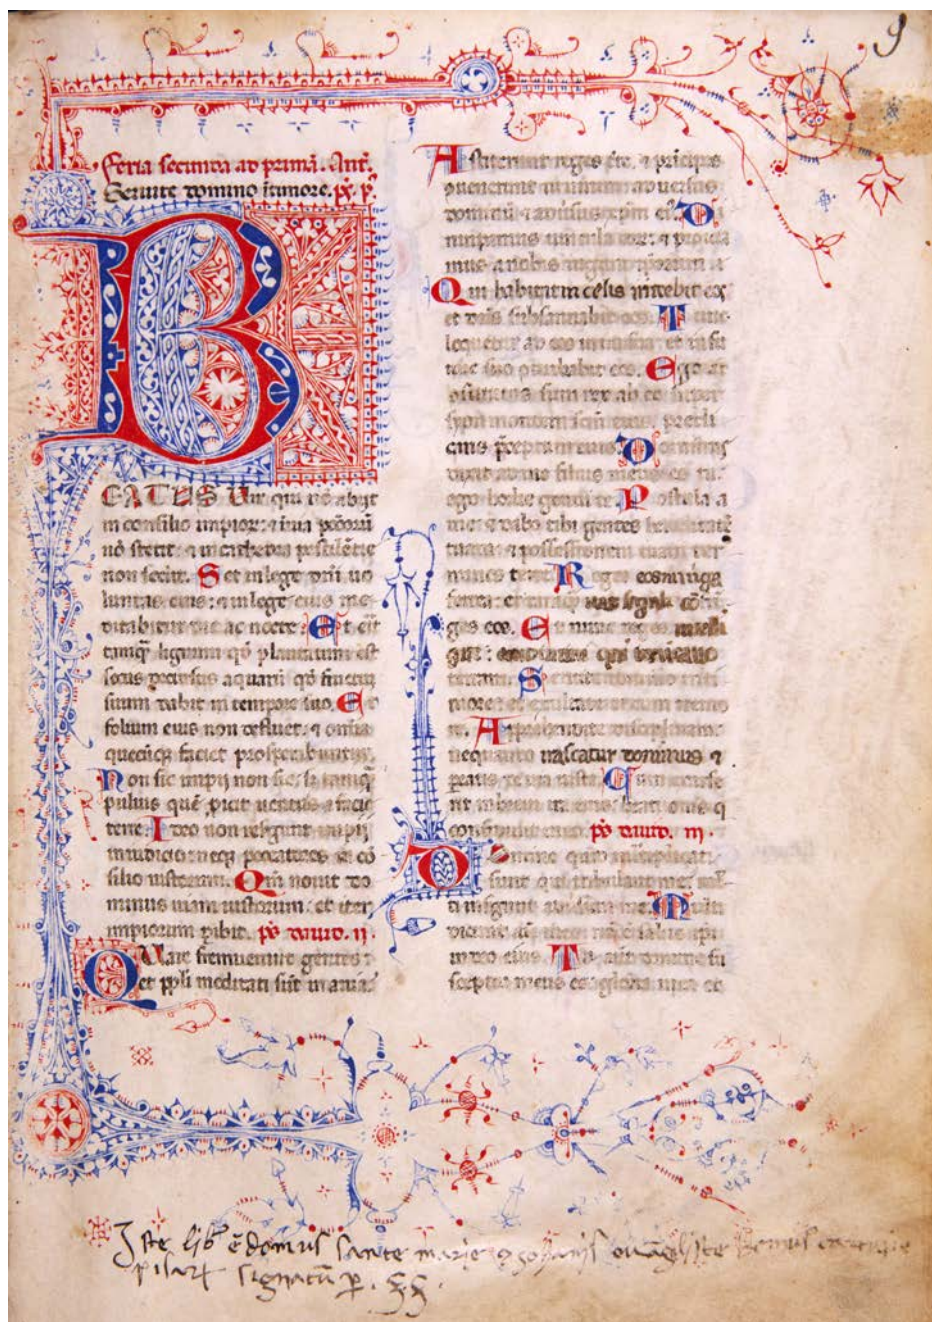 9
Feria secunda ad primā. Ant̄.
Seruite domino ī timore. ps. ps̄
BEATUS Vir qui nō abijt
in consilio impior: ⁊ in uia pctōrū
nō stetit: ⁊ in cathedra pestilētie
non sedit. Set in lege dn̄i uo
luntas eius: ⁊ in lege eius me-
ditabitur die ac nocte. Et erit
tamq̄ lignum qd̄ plantatum est
secus decursus aquarū qd̄ fructū
suum dabit in tempore suo. Et
folium eius non defluet: ⁊ omia
quecūq; faciet prosperabuntur.
Non sic impij non sic: s; tamq̄
puluis quē ꝓicit uentus a facie
terre. Ideo non resurgunt impij
in iudicio: neq; peccatores in cō
silio iustorum. Qm̄ nouit do
minus uiam iustorum: et iter
impiorum ꝑibit. ps̄ dauid. ij.
Quare fremuerunt gentes:
et ppl̄i meditati sūt inania.
Astiterunt reges tr̄e. ⁊ prīcipes
conuenerunt in unum aduersus
dominū ⁊ aduersus xp̄m eiꝰ. Di
rumpamus uincula eor: ⁊ ꝓicia
mus a nobis iugum ip̄orum.
Qui habitat in celis irridebit eos
et dn̄s subsannabit eos. Tunc
loquetur ad eos in ira sua: et in fu
rore suo ꝯturbabit eos. Ego at̄
constitutus sum rex ab eo super
syon montem sc̄m eius: predi
cans p̄ceptum eius. Dominus
dixit ad me filius meus es tu:
ego hodie genui te. Postula a
me: ⁊ dabo tibi gentes hereditatē
tuam: ⁊ possessionem tuam ter
minos terre. Reges eos in uirga
ferrea: et tamq̄ uas figuli cōfrin
ges eos. Et nunc reges intelli
gite: erudimini qui iudicatis
terram. Seruite domino in ti
more: et exultate ei cum tremo
re. Apprehendite disciplinam:
nequando irascatur dominus ⁊
pereatis de uia iusta. Cum exarse
rit in breui ira eius: beati om̄s q
confidunt in eo. ps̄ dauid. iij.
Domine quid multiplicati
sunt qui tribulant me: mul-
ti insurgunt aduersum me. Multi
dicunt aīe mee: nō ē salus ipi
in deo eius. Tu autem domine su
sceptor meus es: gloria mea et
Iste lib̄ ē domus sante marie ⁊ Johanīs euāgliste
pisar signatū p.